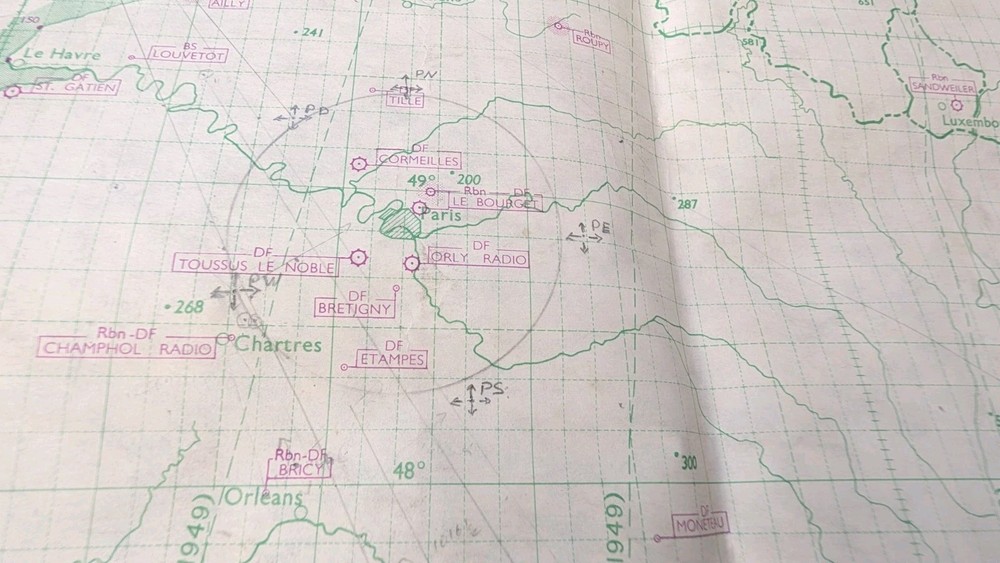 AILLY
651
150
241
Rbn
ROUPY
581
Le Havre
BS
LOUVETOT
DF
ST. GATIEN
PN
TILLE
Rbn
SANDWEILER
Luxembo
PD
DF
CORMEILLES
49° 200
Rbn DF
LE BOURGET
287
Paris
PE
DF
TOUSSUS LE NOBLE
DF
ORLY RADIO
PW
DF
BRETIGNY
268
Rbn-DF
CHAMPHOL RADIO
Chartres
DF
ETAMPES
PS
Rbn-DF
BRICY
48°
300
Orléans
1949)
1949)
DF
MONETEAU